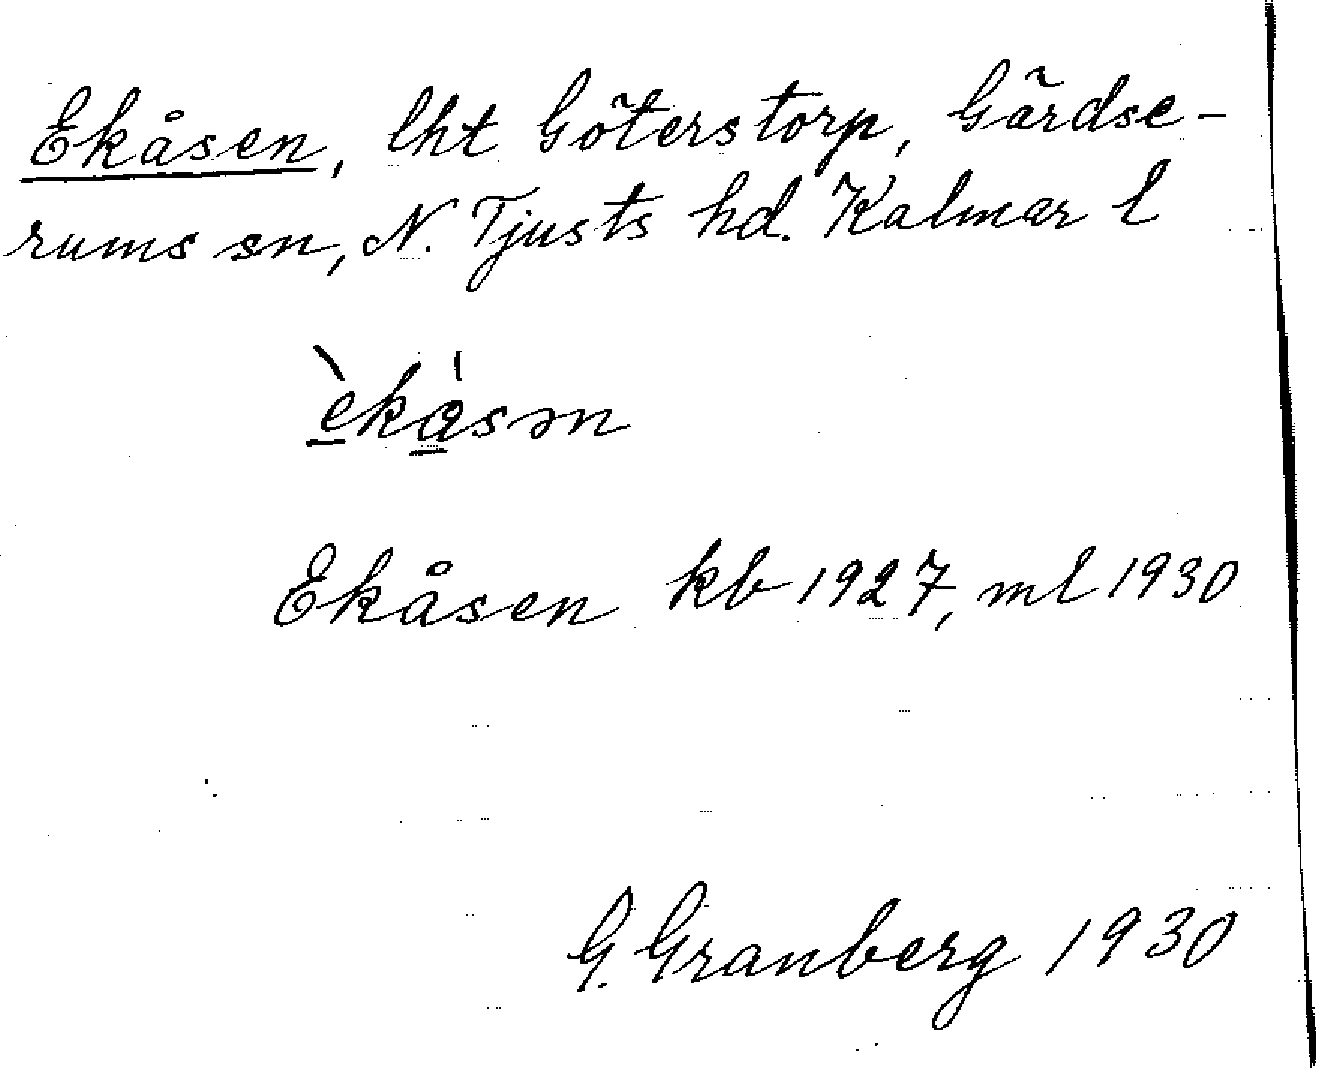 Ekåsen, lht Göterstorp, Gärdse-
rums sn, N. Tjusts hd. Kalmar l
èkåsən
Ekåsen kb 1927, ml 1930
G. Granberg 1930